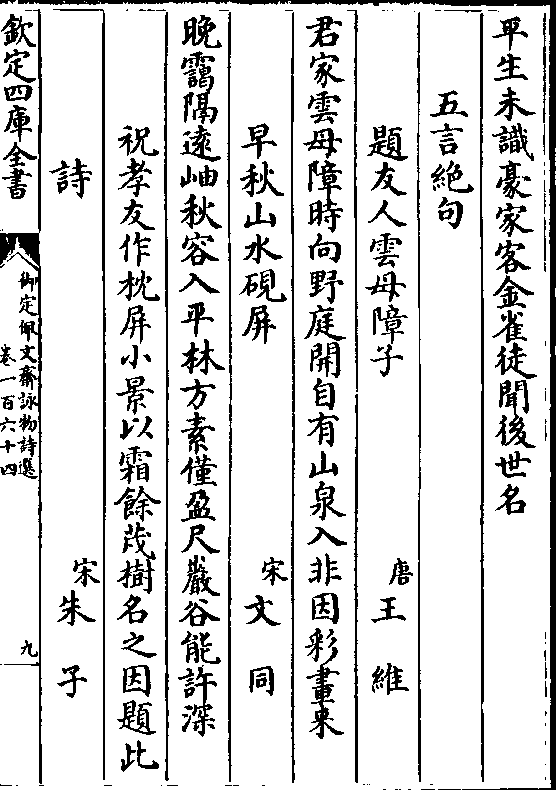 平生未識豪家客金雀徒聞後世名
五言絶句
題友人雲母障子
唐王維
君家雲母障時向野庭開自有山泉入非因彩畫來
早秋山水硯屏
宋文同
晚靄隔遠岫秋容入平林方素僅盈尺巖谷能許深
祝孝友作枕屏小景以霜餘茂樹名之因題此
詩
宋朱子
欽定四庫全書
御定佩文齋詠物詩選
卷一百六十四
九